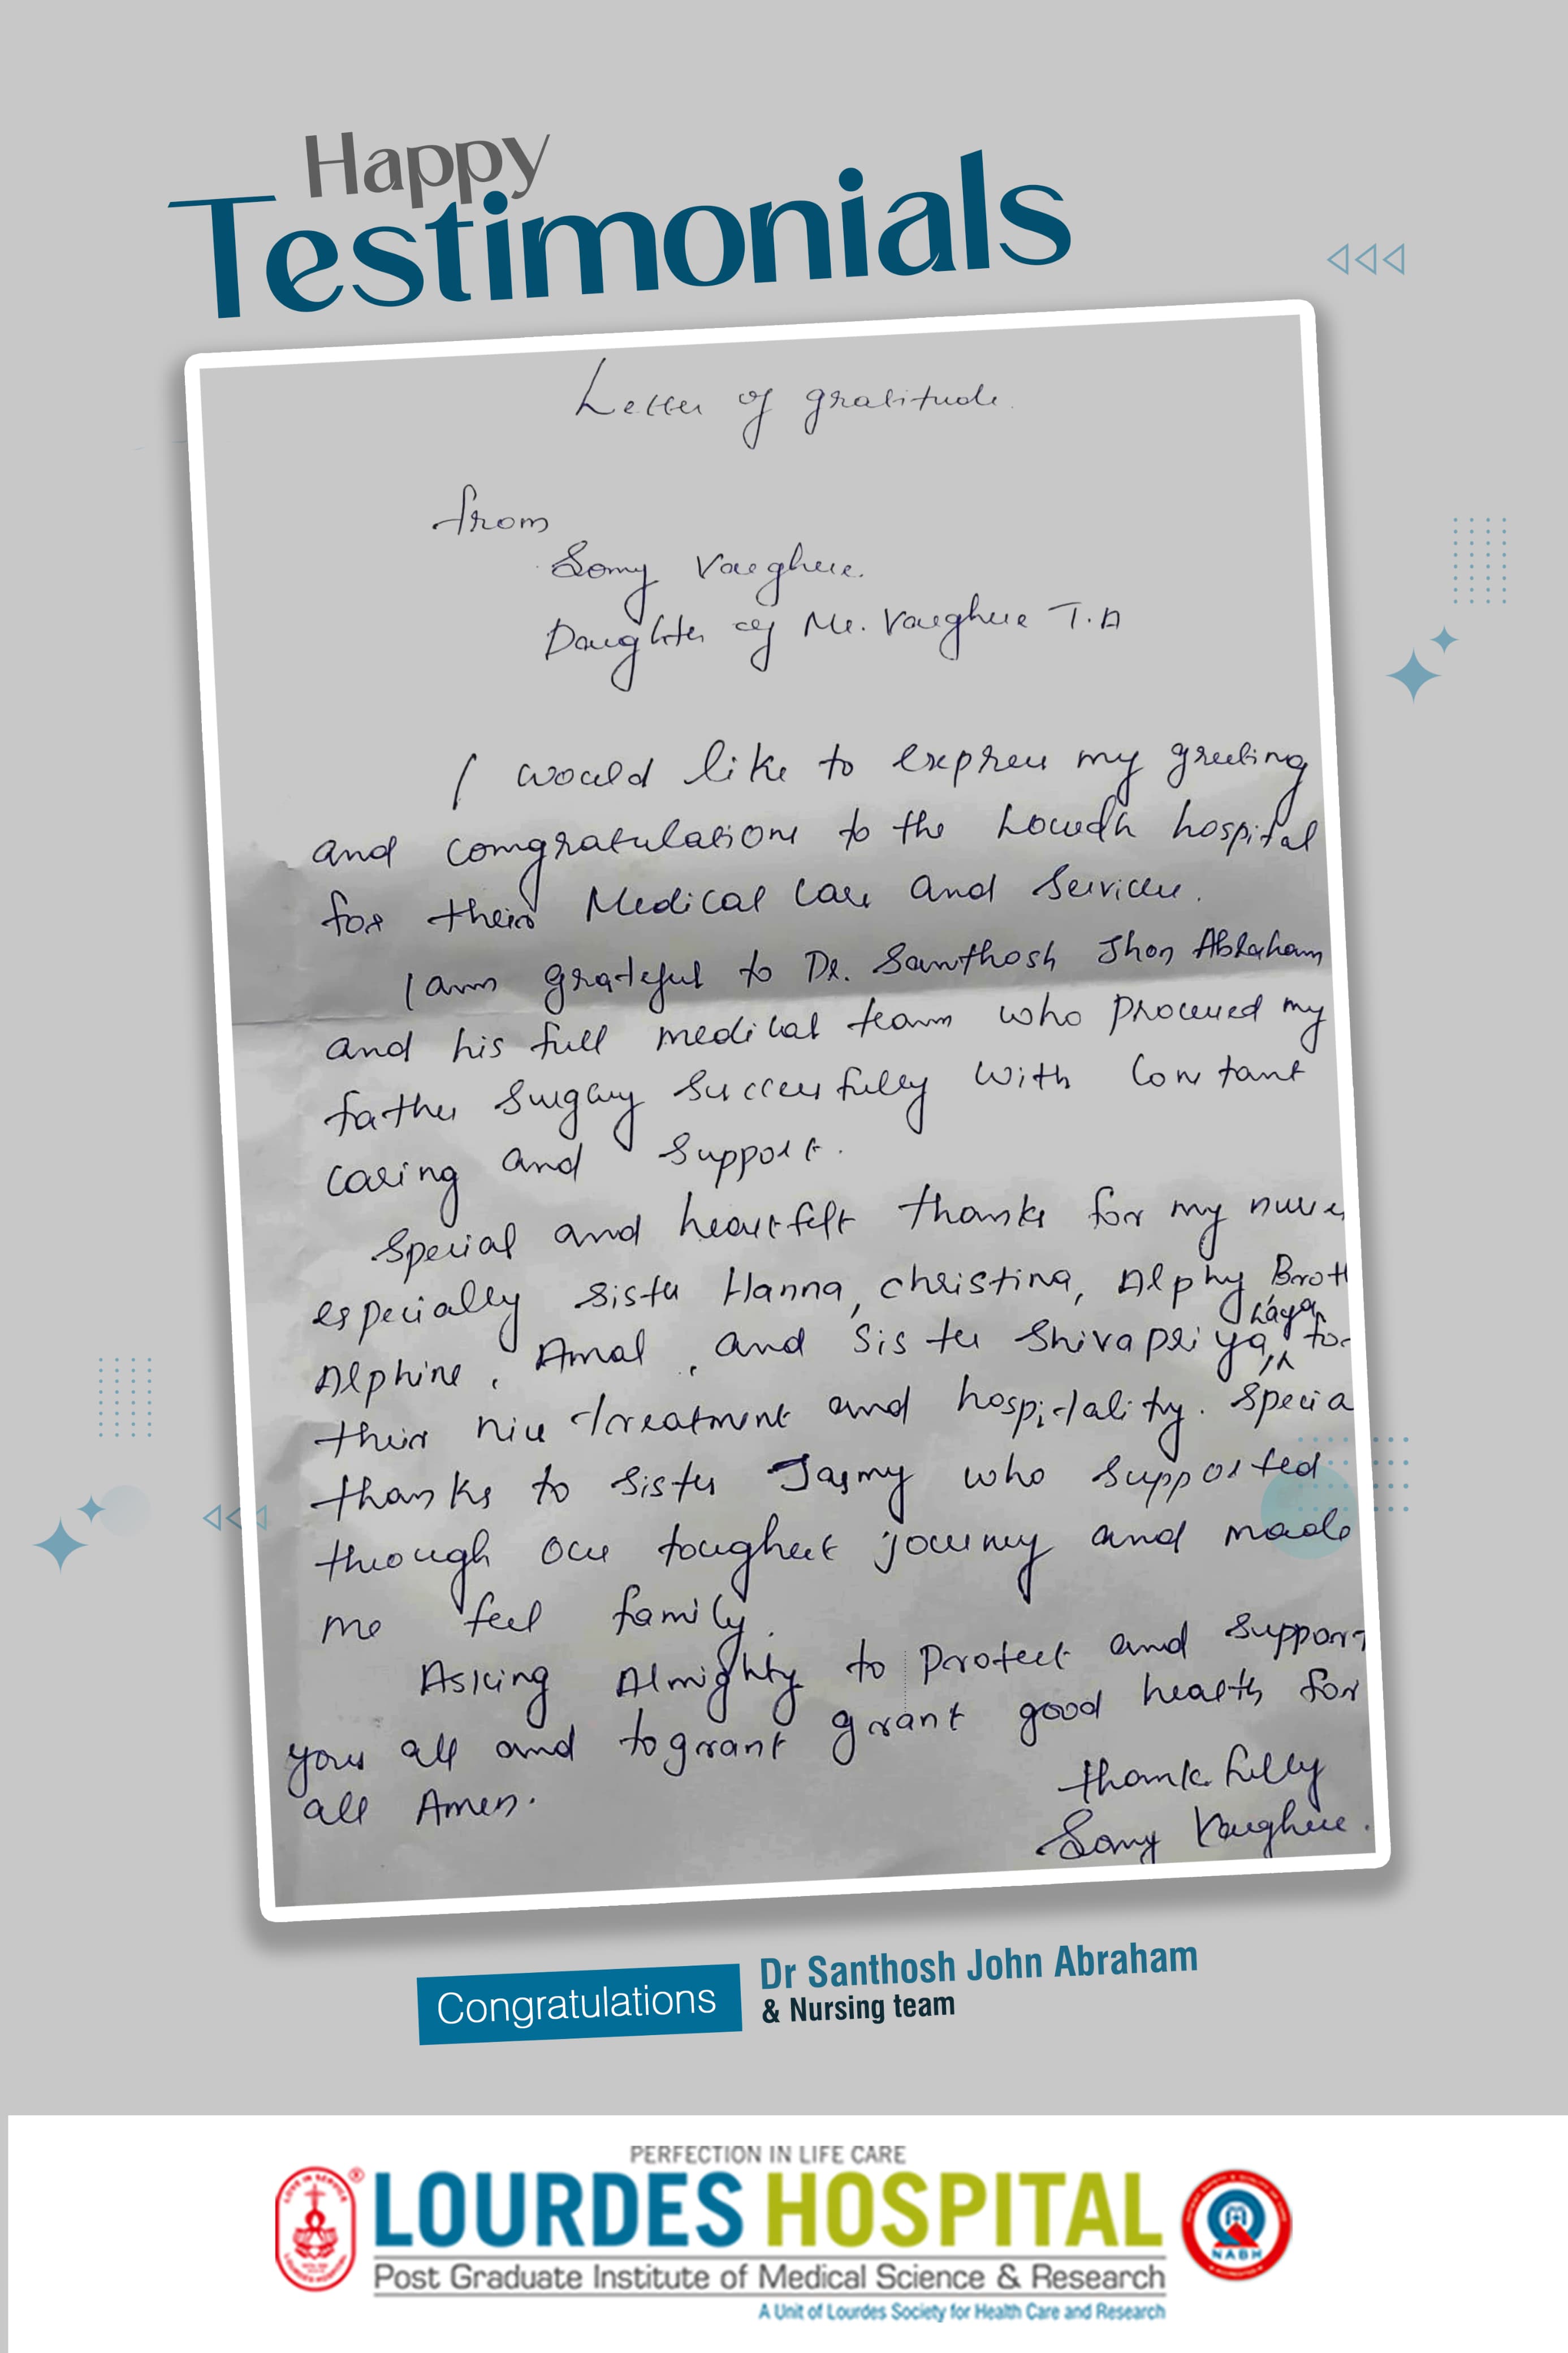 Happy
Testimonials
Letter of gratitude.
from
Somy Varghese.
Daughter of Mr. Varghese T.A
I would like to express my greeting
and congratulations to the hospital
for their Medical Care and Services.
I am grateful to Dr. Santhosh Jhon Abraham
and his full medical team who my
father surgery successfully with constant
caring and support.
Special and heartfelt thanks for my
especially sister Hanna, Christina, Alphy Broth
Laya
Alphine, Amal, and Sister Shivapriya, for
their nice treatment and hospitality. Specia
thanks to sister Jasmy who supported
through our toughest journey and made
me feel family.
Asking Almighty to Protect and support
your all and to grant grant good health for
all Amen.
thankfully
Somy Varghese.
Congratulations
Dr Santhosh John Abraham
& Nursing team
PERFECTION IN LIFE CARE
LOURDES HOSPITAL
Post Graduate Institute of Medical Science & Research
A Unit of Lourdes Society for Health Care and Research
NABH